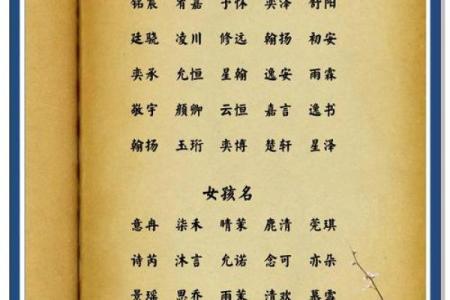 铭宸 宥嘉 予怀 奕泽 舒阳
廷骁 凌川 修远 翰扬 初安
奕承 允恒 星翰 逸安 雨霖
敬宇 颜卿 云恒 嘉言 逸书
翰扬 玉珩 奕博 楚轩 星泽
女孩名
意冉 柒禾 晴茉 鹿清 莞琪
诗芮 沐言 允诺 念可 亦朵
景瑶 思乔 雨茉 清欢 慕云